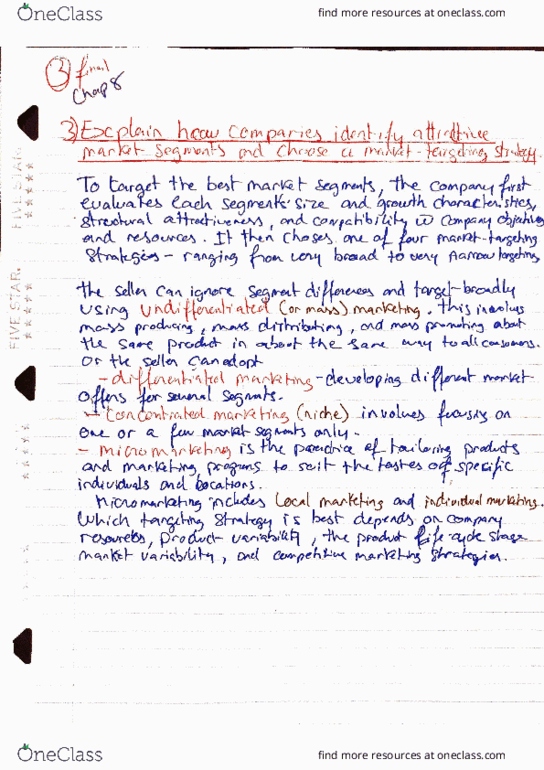 OneClass
find more resources at oneclass.com
③ final
Chap 8
3) Explain how companies identify attractive
market segments and choose a market-targeting strategy.
To target the best market segments, the company first
evaluates each segment's size and growth characteristics,
structural attractiveness, and compatibility w company objectives
and resources. It then choses one of four market-targeting
strategies - ranging from very broad to very narrow targeting.
The seller can ignore segment differences and target broadly
using undifferentiated (or mass) marketing. This involves
mass producing, mass distributing, and mass promoting about
the same product in about the same way to all consumers.
Or the seller can adopt
- differentiated marketing - developing different market
offers for several segments.
- Concentrated marketing (niche) involves focusing on
one or a few market segments only.
- micromarketing is the practice of tailoring products
and marketing programs to suit the tastes of specific
individuals and locations.
Micromarketing includes Local marketing and individual marketing.
Which targeting strategy is best depends on company
resources, product variability, the product life-cycle stage
market variability, and competitive marketing strategies.
FIVE STAR.
FIVE STAR.
OneClass
find more resources at oneclass.com